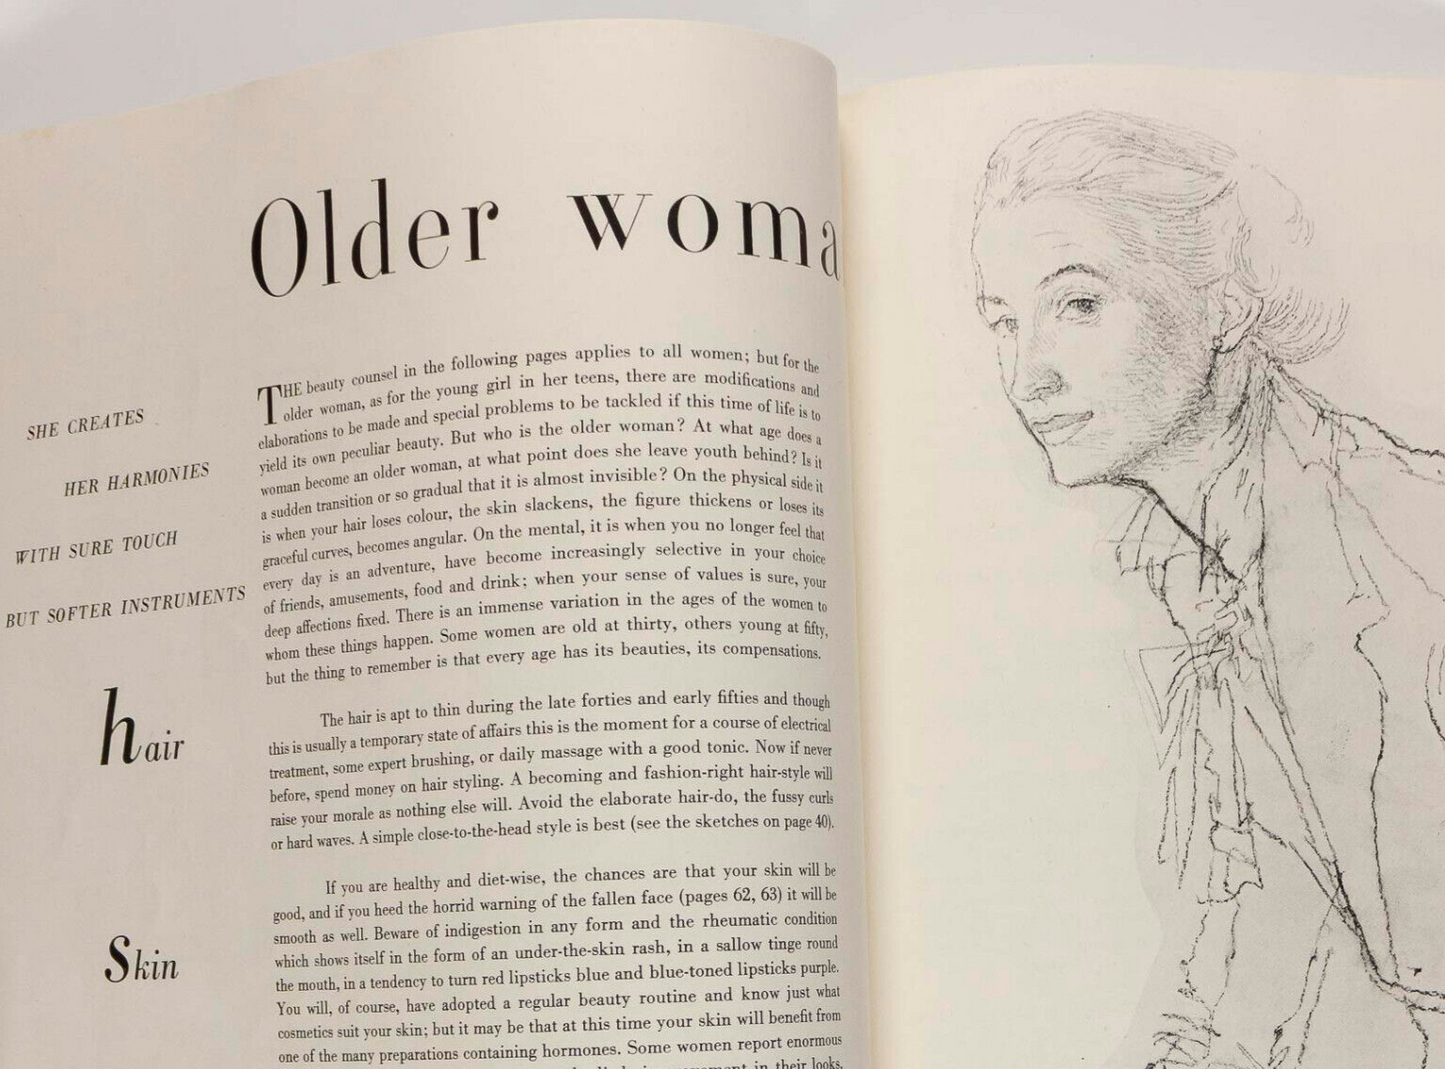 Older woma
SHE CREATES
HER HARMONIES
WITH SURE TOUCH
BUT SOFTER INSTRUMENTS
THE beauty counsel in the following pages applies to all women; but for the
older woman, as for the young girl in her teens, there are modifications and
elaborations to be made and special problems to be tackled if this time of life is to
yield its own peculiar beauty. But who is the older woman? At what age does a
woman become an older woman, at what point does she leave youth behind? Is it
a sudden transition or so gradual that it is almost invisible? On the physical side it
is when your hair loses colour, the skin slackens, the figure thickens or loses its
graceful curves, becomes angular. On the mental, it is when you no longer feel that
every day is an adventure, have become increasingly selective in your choice
of friends, amusements, food and drink; when your sense of values is sure, your
deep affections fixed. There is an immense variation in the ages of the women to
whom these things happen. Some women are old at thirty, others young at fifty,
but the thing to remember is that every age has its beauties, its compensations.
hair
The hair is apt to thin during the late forties and early fifties and though
this is usually a temporary state of affairs this is the moment for a course of electrical
treatment, some expert brushing, or daily massage with a good tonic. Now if never
before, spend money on hair styling. A becoming and fashion-right hair-style will
raise your morale as nothing else will. Avoid the elaborate hair-do, the fussy curls
or hard waves. A simple close-to-the-head style is best (see the sketches on page 40).
Skin
If you are healthy and diet-wise, the chances are that your skin will be
good, and if you heed the horrid warning of the fallen face (pages 62, 63) it will be
smooth as well. Beware of indigestion in any form and the rheumatic condition
which shows itself in the form of an under-the-skin rash, in a sallow tinge round
the mouth, in a tendency to turn red lipsticks blue and blue-toned lipsticks purple.
You will, of course, have adopted a regular beauty routine and know just what
cosmetics suit your skin; but it may be that at this time your skin will benefit from
one of the many preparations containing hormones. Some women report enormous
in their looks,